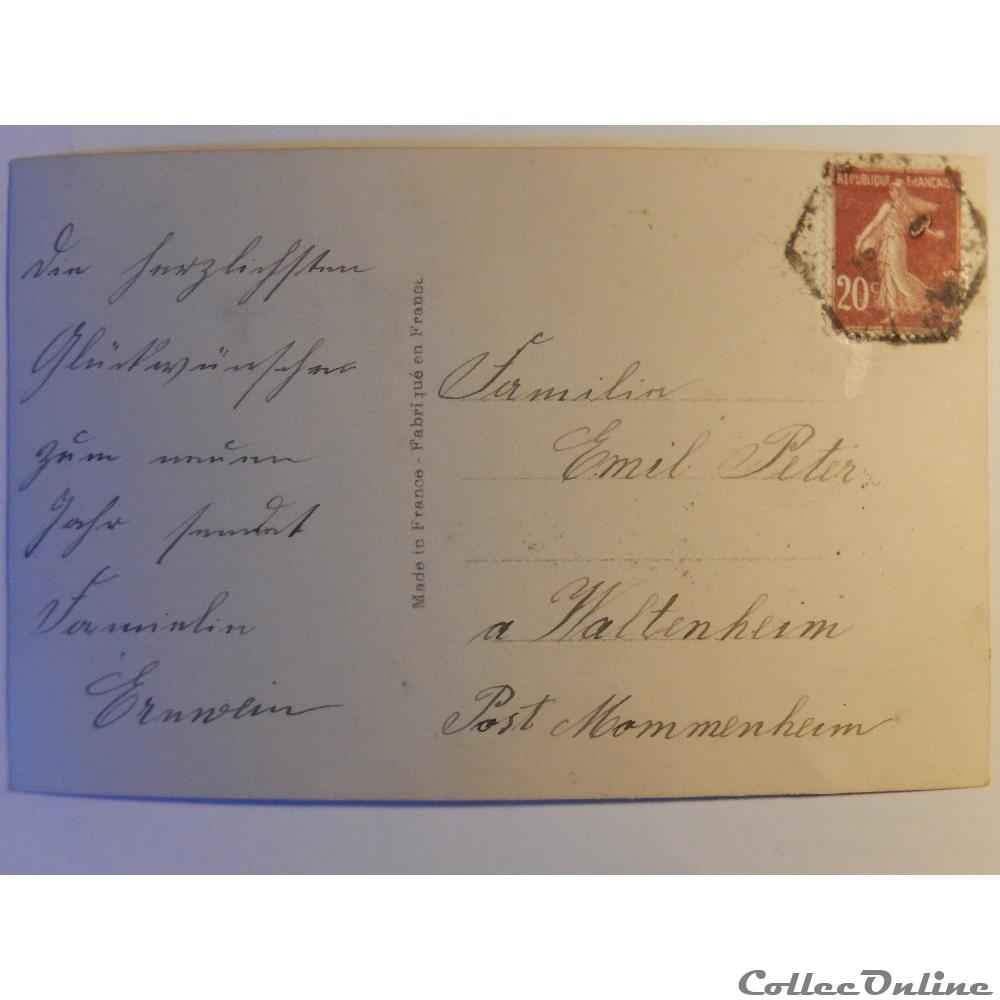 Die herzlichsten
Glückwünsche
zum neuen
Jahr sendet
Familie
Ernwein
Made in France - Fabriqué en France
REPUBLIQUE FRANÇAISE
20c
POSTES
Familie
Emil Peter
a Waltenheim
Post Mommenheim
CollecOnline